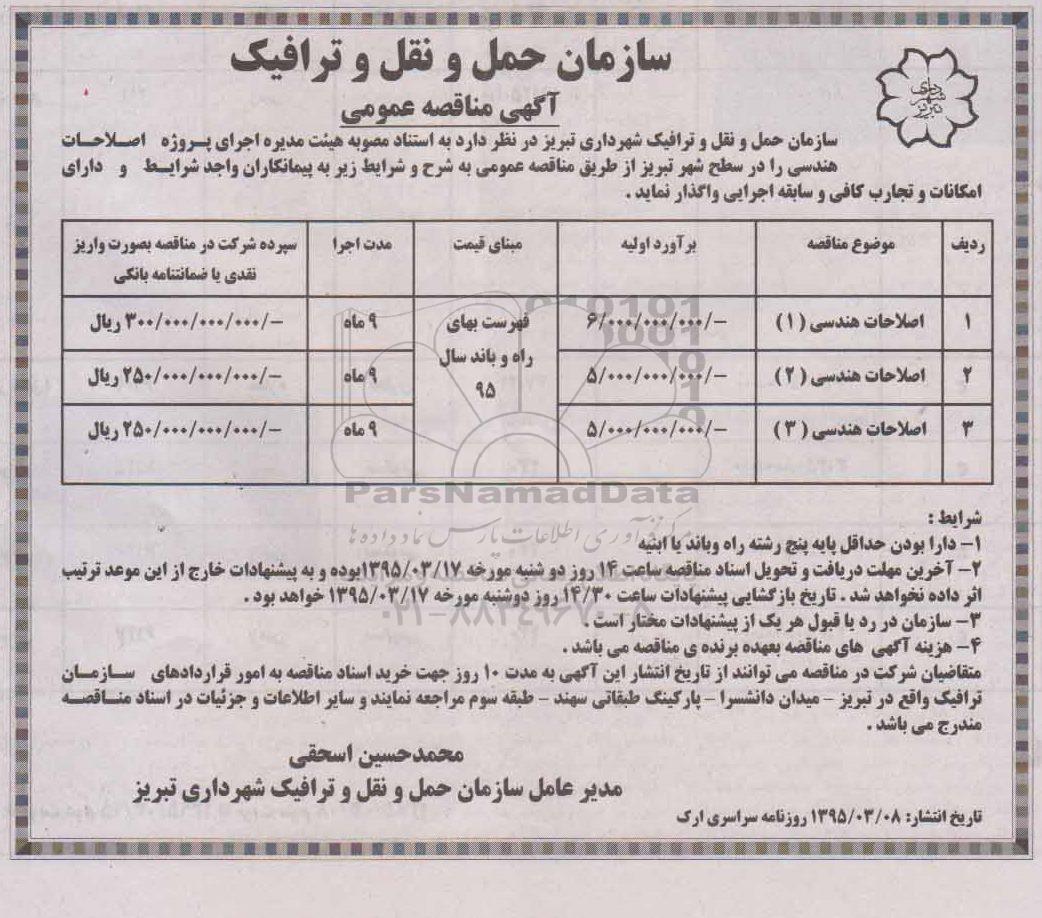 سازمان حمل و نقل و ترافیک
شهرداری تبریز
آگهی مناقصه عمومی
سازمان حمل و نقل و ترافیک شهرداری تبریز در نظر دارد به استناد مصوبه هیئت مدیره اجرای پروژه اصلاحات
هندسی را در سطح شهر تبریز از طریق مناقصه عمومی به شرح و شرایط زیر به پیمانکاران واجد شرایط و دارای
امکانات و تجارب کافی و سابقه اجرایی واگذار نماید .
ردیف موضوع مناقصه برآورد اولیه مبنای قیمت مدت اجرا سپرده شرکت در مناقصه بصورت واریز
نقدی یا ضمانتنامه بانکی
۱ اصلاحات هندسی (۱) ۶/۰۰۰/۰۰۰/۰۰۰/− فهرست بهای ۹ ماه ۳۰۰/۰۰۰/۰۰۰/۰۰۰/− ریال
راه و باند سال
۲ اصلاحات هندسی (۲) ۵/۰۰۰/۰۰۰/۰۰۰/− ۹۵ ۹ ماه ۲۵۰/۰۰۰/۰۰۰/۰۰۰/− ریال
۳ اصلاحات هندسی (۳) ۵/۰۰۰/۰۰۰/۰۰۰/− ۹ ماه ۲۵۰/۰۰۰/۰۰۰/۰۰۰/− ریال
ParsNamadData
مرکز فرآوری اطلاعات پارس نماد داده ها
شرایط :
۱− دارا بودن حداقل پایه پنج رشته راه وباند یا ابنیه
۲− آخرین مهلت دریافت و تحویل اسناد مناقصه ساعت ۱۴ روز دو شنبه مورخه ۱۳۹۵/۰۳/۱۷بوده و به پیشنهادات خارج از این موعد ترتیب
اثر داده نخواهد شد . تاریخ بازگشایی پیشنهادات ساعت ۱۴/۳۰ روز دوشنبه مورخه ۱۳۹۵/۰۳/۱۷ خواهد بود .
۰۲۱−۸۸۳۴۹۶۷۰−۵
۳− سازمان در رد یا قبول هر یک از پیشنهادات مختار است .
۴− هزینه آگهی های مناقصه بعهده برنده ی مناقصه می باشد .
متقاضیان شرکت در مناقصه می توانند از تاریخ انتشار این آگهی به مدت ۱۰ روز جهت خرید اسناد مناقصه به امور قراردادهای سازمان
ترافیک واقع در تبریز − میدان دانشسرا − پارکینگ طبقاتی سهند − طبقه سوم مراجعه نمایند و سایر اطلاعات و جزئیات در اسناد مناقصه
مندرج می باشد .
محمدحسین اسحقی
مدیر عامل سازمان حمل و نقل و ترافیک شهرداری تبریز
تاریخ انتشار: ۱۳۹۵/۰۳/۰۸ روزنامه سراسری ارک